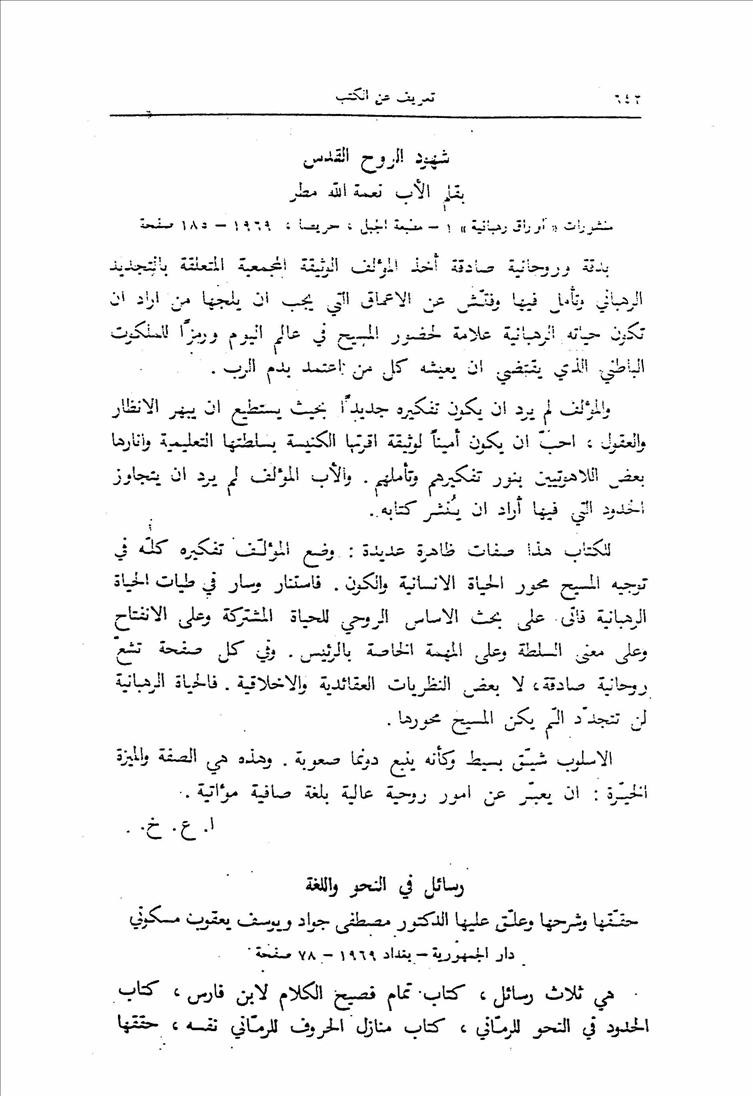 ٦٤٢ تعريف عن الكتب
شهود الروح القدس
بقلم الأب نعمة الله مطر
منشورات «أوراق رهبانية» ١ – مطبعة الجبل ، حريصا ، ١٩٦٩ – ١٨٥ صفحة
بدقة وروحانية صادقة أخذ المؤلف الوثيقة المجمعية المتعلقة بالتجديد
الرهباني وتأمل فيها وفتّش عن الاعماق التي يجب ان يلجها من اراد ان
تكون حياته الرهبانية علامة لحضور المسيح في عالم اليوم ورمزاً للملكوت
الباطني الذي يقتضي ان يعيشه كل من اعتمد بدم الرب .
والمؤلف لم يرد ان يكون تفكيره جديداً بحيث يستطيع ان يبهر الانظار
والعقول ، احبّ ان يكون أميناً لوثيقة اقرتها الكنيسة بسلطتها التعليمية وانارها
بعض اللاهوتيين بنور تفكيرهم وتأملهم . والأب المؤلف لم يرد ان يتجاوز
الحدود التي فيها أراد ان يُنشر كتابه .
للكتاب هذا صفات ظاهرة عديدة : وضع المؤلّف تفكيره كلّه في
توجيه المسيح محور الحياة الانسانية والكون . فاستنار وسار في طيات الحياة
الرهبانية فأتى على بحث الاساس الروحي للحياة المشتركة وعلى الانفتاح
وعلى معنى السلطة وعلى المهمة الخاصة بالرئيس . وفي كل صفحة تشعّ
روحانية صادقة، لا بعض النظريات العقائدية والاخلاقية . فالحياة الرهبانية
لن تتجدّد الّم يكن المسيح محورها .
الاسلوب شيّق بسيط وكأنه ينبع دونما صعوبة . وهذه هي الصفة والميزة
الخيّرة : ان يعبّر عن امور روحية عالية بلغة صافية مؤاتية .
ا. ع. خ. .
رسائل في النحو واللغة
حقّقها وشرحها وعلّق عليها الدكتور مصطفى جواد ويوسف يعقوب مسكوني
دار الجمهورية – بغداد ١٩٦٩ – ٧٨ صفحة
هي ثلاث رسائل ، كتاب تمام فصيح الكلام لابن فارس ، كتاب
الحدود في النحو للرمّاني ، كتاب منازل الحروف للرمّاني نفسه ، حققها